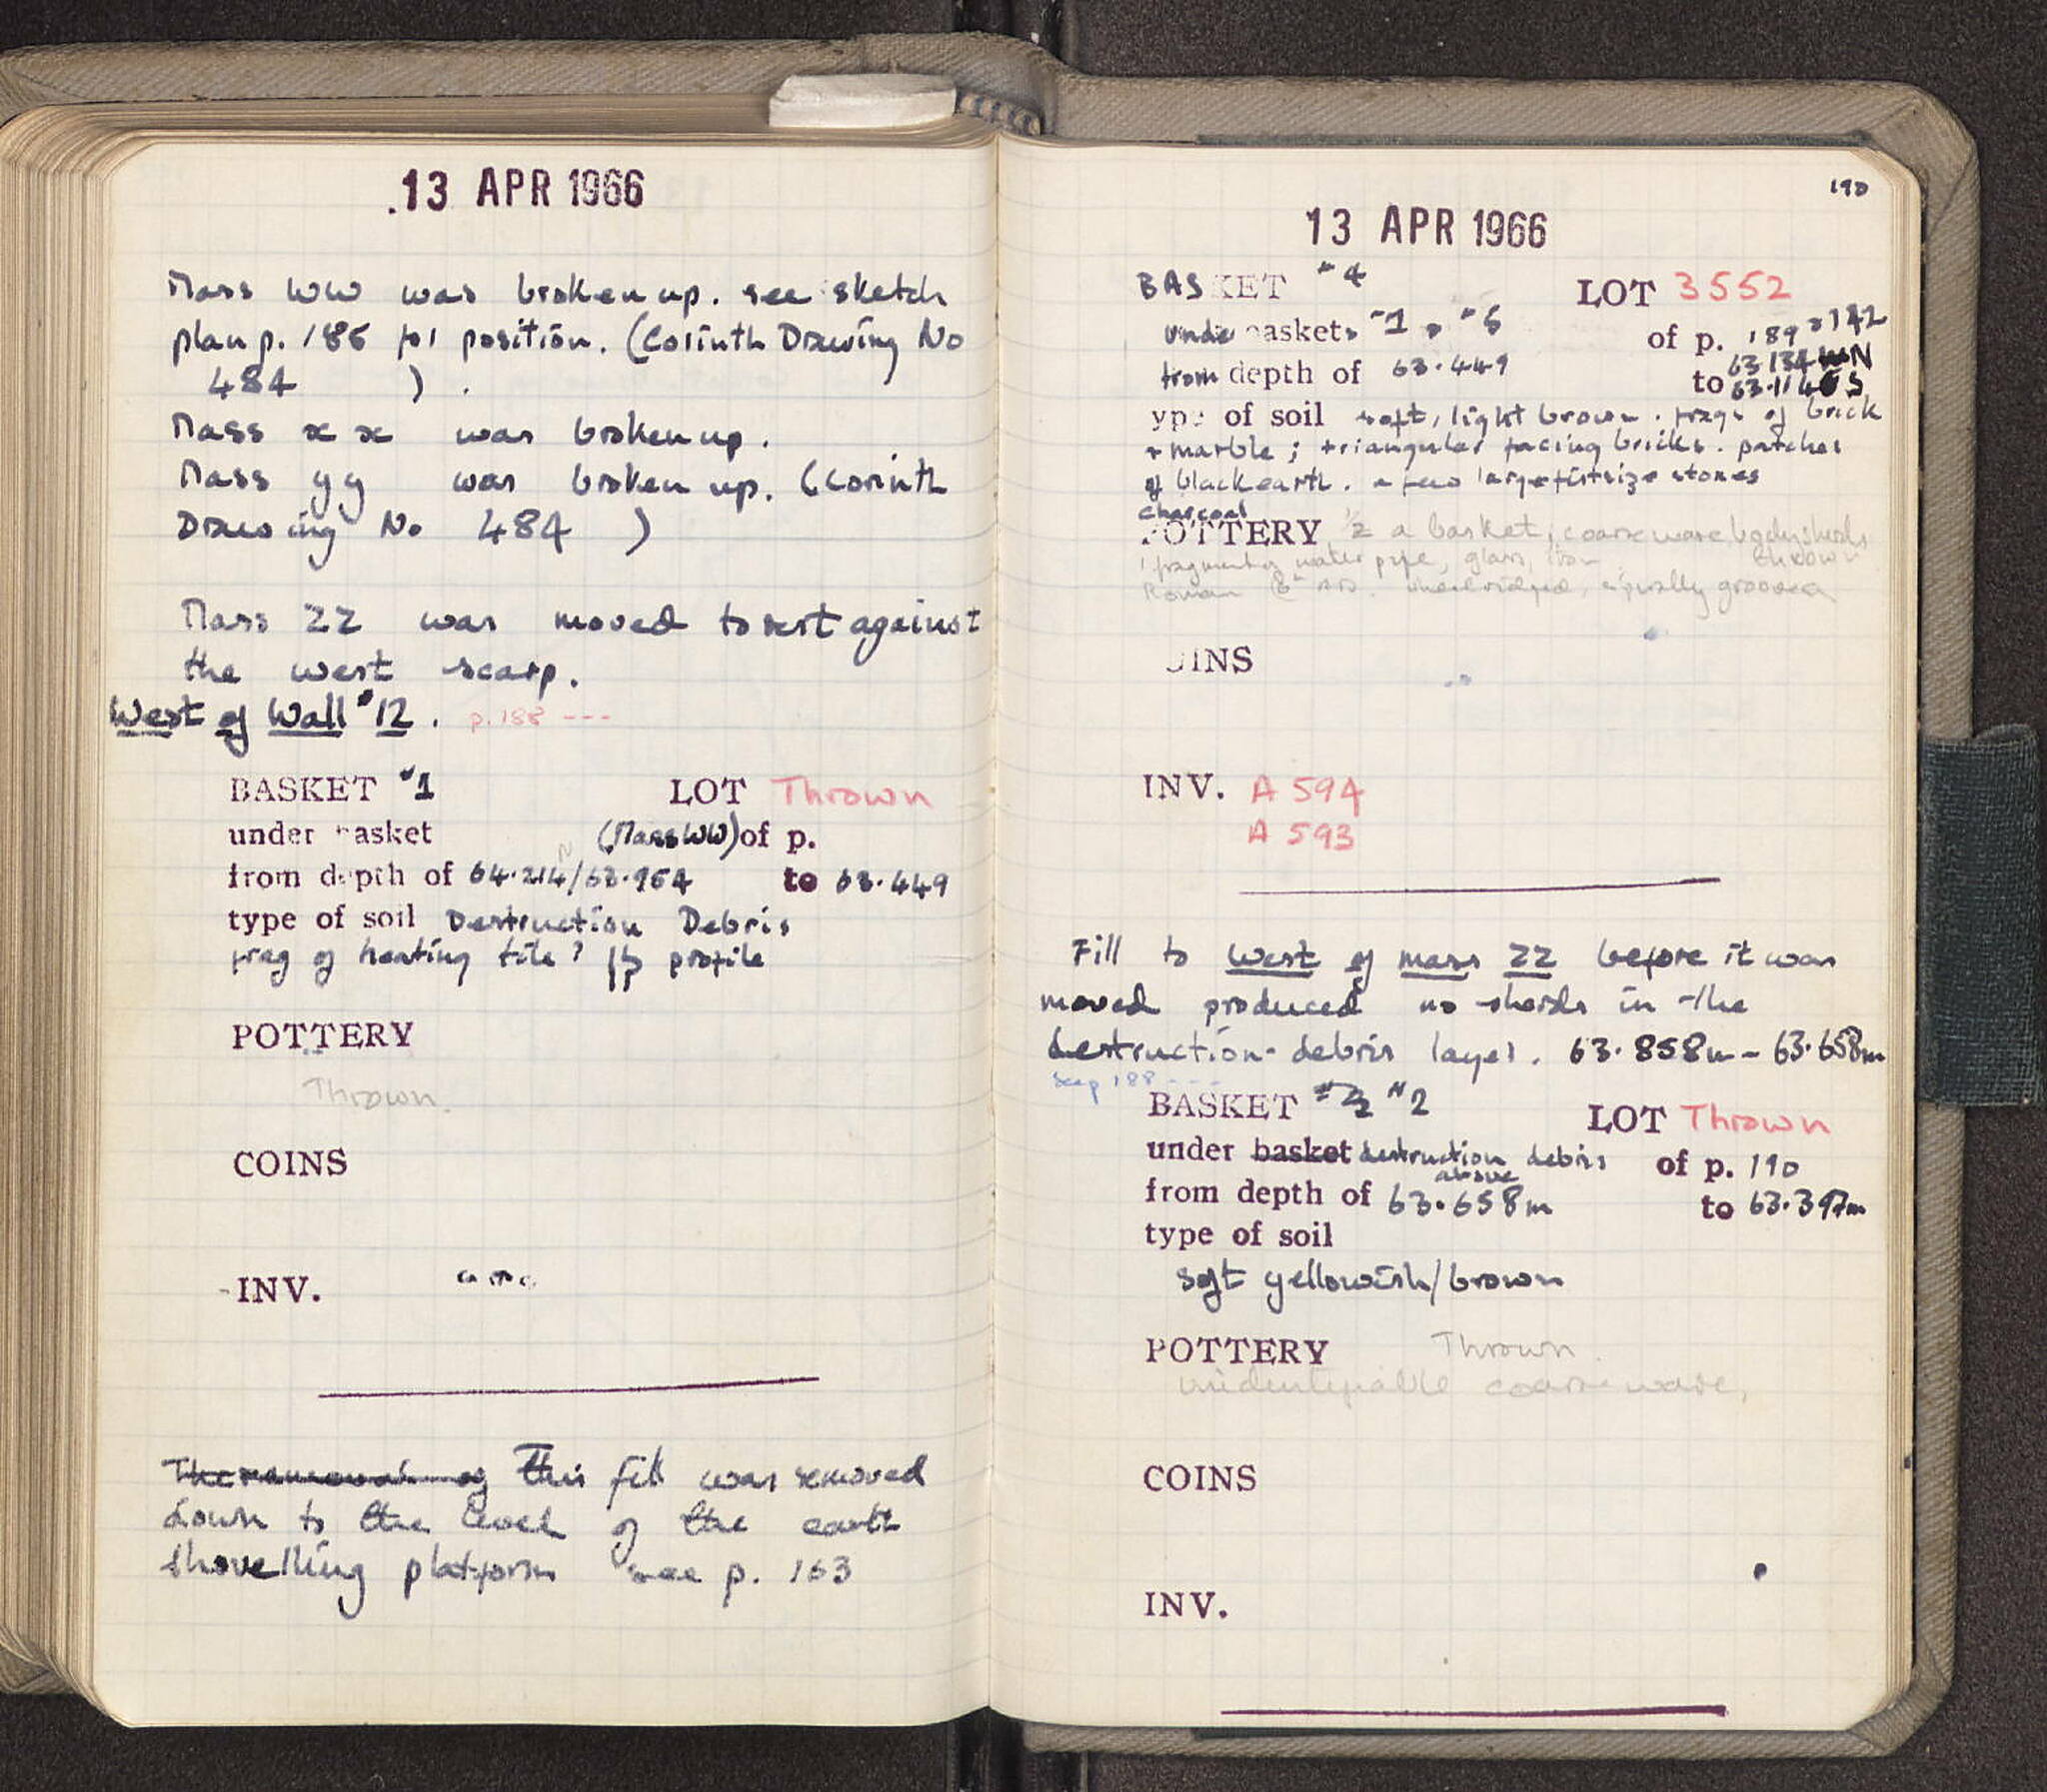 13 APR 1966
Mass WW was broken up. see sketch
plan p. 186 for position. (Corinth Drawing No
484 ) .
Mass xx was broken up.
Mass yy was broken up. (Corinth
Drawing No 484 )
Mass ZZ was moved to rest against
the west scarp.
West of Wall #12. p. 188 ---
BASKET #1 LOT Thrown
under basket (Mass WW) of p.
from depth of 64.214/63.964 to 63.449
type of soil Destruction Debris
frag of heating tile? profile
POTTERY
Thrown.
COINS
INV.
The removal of This fill was removed
down to the level of the earth
shovelling platform see p. 163
190
13 APR 1966
BASKET #4 LOT 3552
under baskets #1 #5 of p. 189 + 142
from depth of 63.449 to 63.134 N
63.114 S
type of soil soft, light brown. frags of brick
+ marble; triangular facing bricks. patches
of black earth. a few large fistsize stones
charcoal
POTTERY 1/2 a basket; coarse ware bodysherds
1 fragment of water pipe, glass, iron thrown
Roman AD. wheelridged, spirally grooved
COINS
INV. A 594
A 593
Fill to West of mass ZZ before it was
moved produced no sherds in the
destruction-debris layer. 63.858m - 63.658m
see p 188 ---
BASKET #2 LOT Thrown
under basket destruction debris of p. 190
above
from depth of 63.658m to 63.397m
type of soil
soft yellowish/brown
POTTERY Thrown.
unidentifiable coarse ware,
COINS
INV.